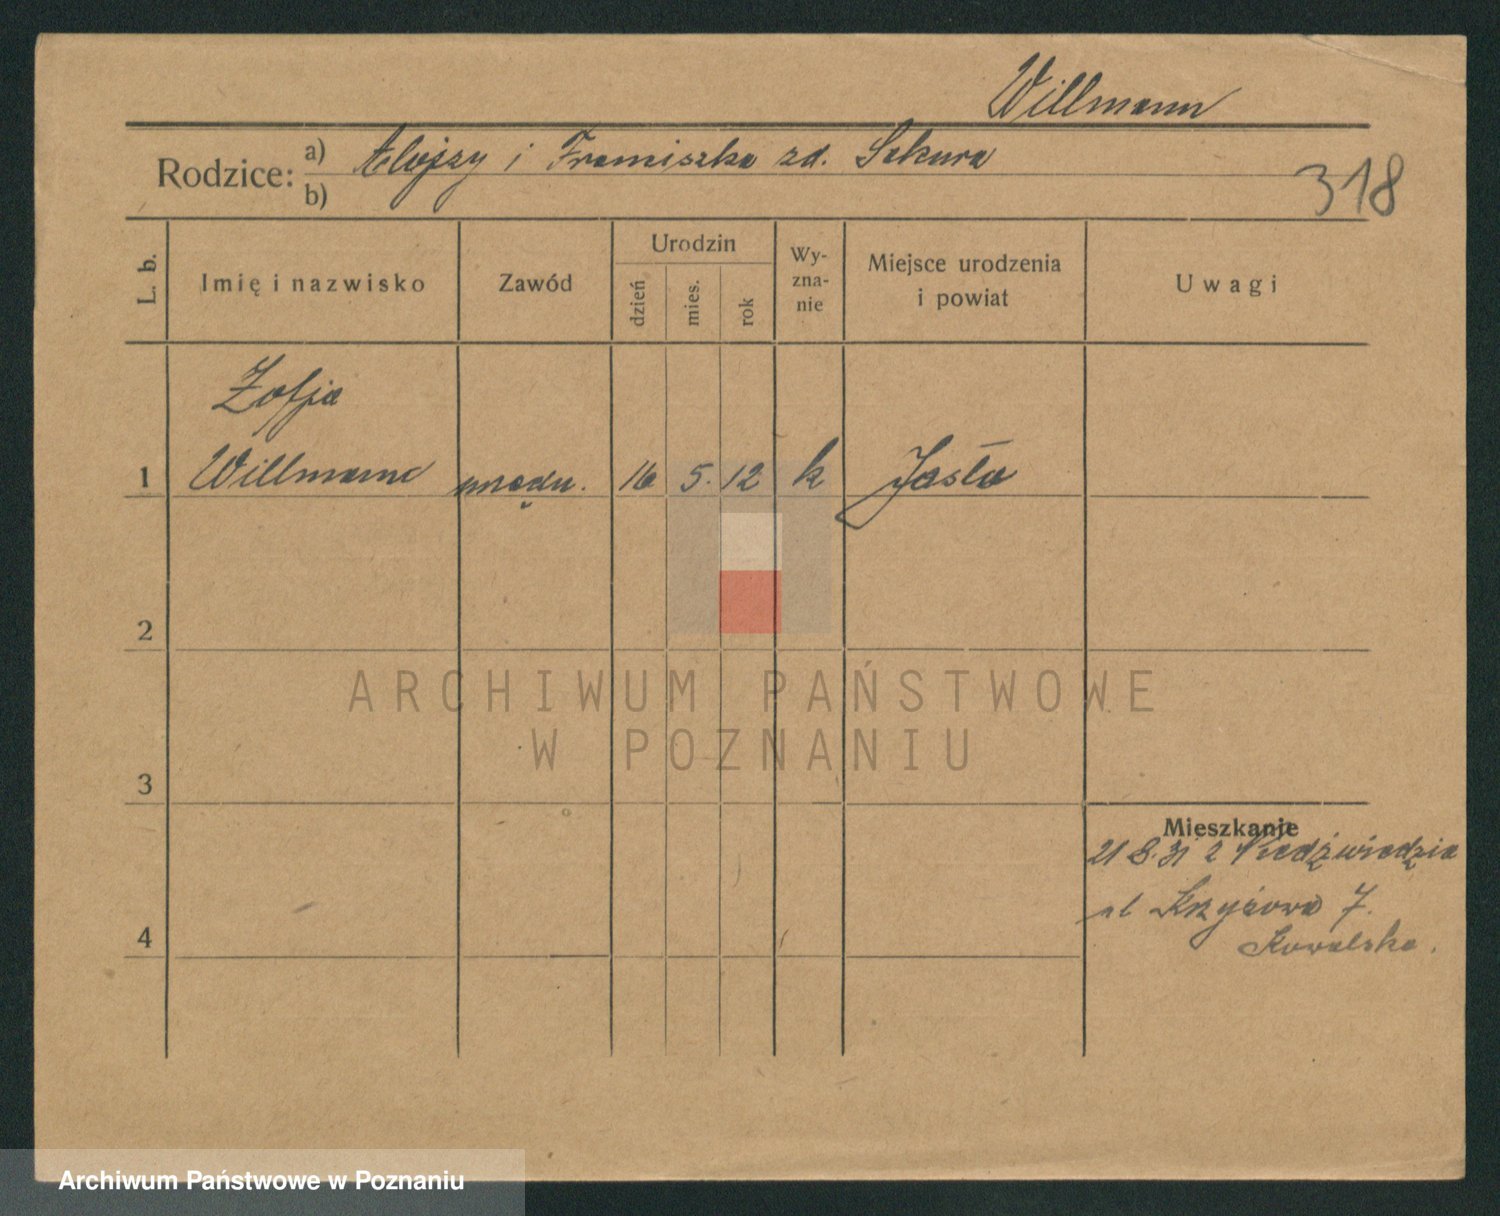 Willmann
Rodzice: a) Alojzy i Franciszka zd. Sekura
b)
318
L. b. Imię i nazwisko Zawód Urodzin dzień mies. rok Wyznanie Miejsce urodzenia i powiat Uwagi
Zofja
1 Willmann urzędn. 16 5. 12 k Jasło
2
3
4
Mieszkanie
21 8. 31 z Niedźwiedzia
ul Krzyżowa 7.
Kowalska.
ARCHIWUM PAŃSTWOWE
W POZNANIU
Archiwum Państwowe w Poznaniu